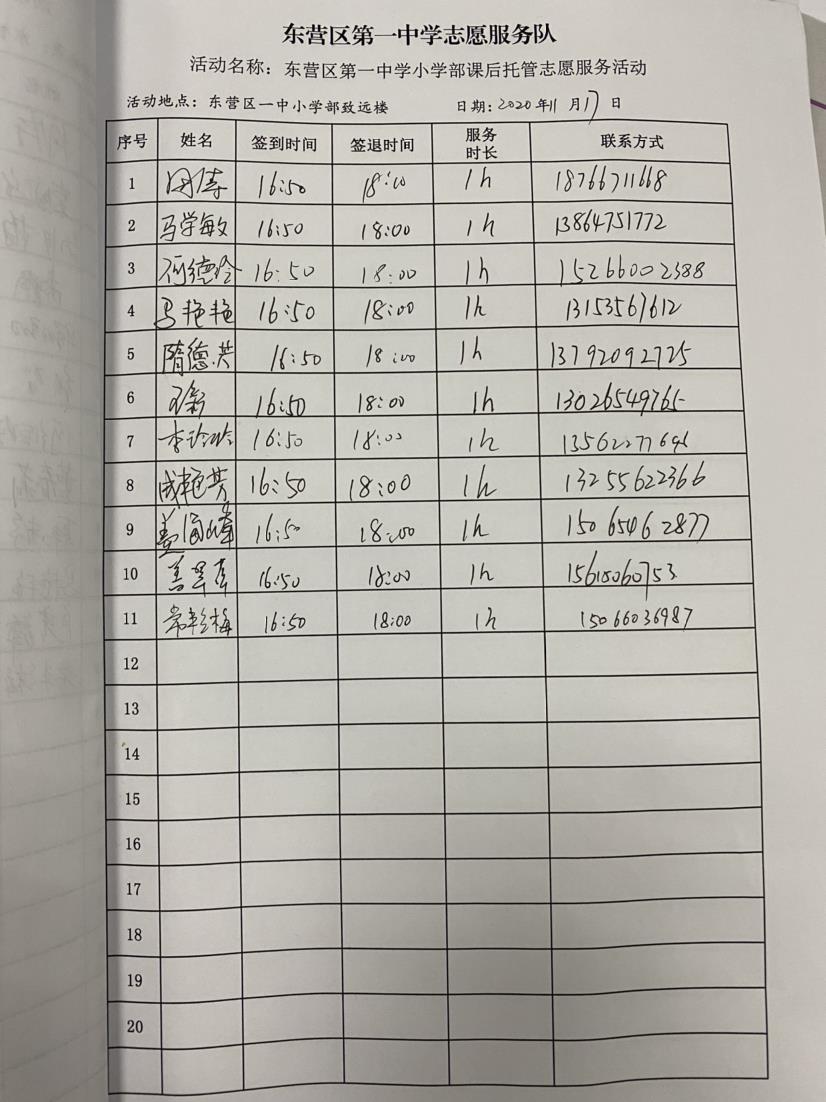 东营区第一中学志愿服务队
活动名称：东营区第一中学小学部课后托管志愿服务活动
活动地点：东营区一中小学部致远楼 日期：2020年11月17日
序号 姓名 签到时间 签退时间 服务时长 联系方式
1 16:50 18:00 1h 18766711668
2 马学敏 16:50 18:00 1h 13864751772
3 16:50 18:00 1h 15266002388
4 马艳艳 16:50 18:00 1h 13153567612
5 隋德英 16:50 18:00 1h 13792092725
6 王新 16:50 18:00 1h 13026549765
7 李玲玲 16:50 18:00 1h
8 成艳芳 16:50 18:00 1h 13255622366
9 16:50 18:00 1h 15065462877
10 16:50 18:00 1h 15615060753
11 16:50 18:00 1h 15066036987
12
13
14
15
16
17
18
19
20